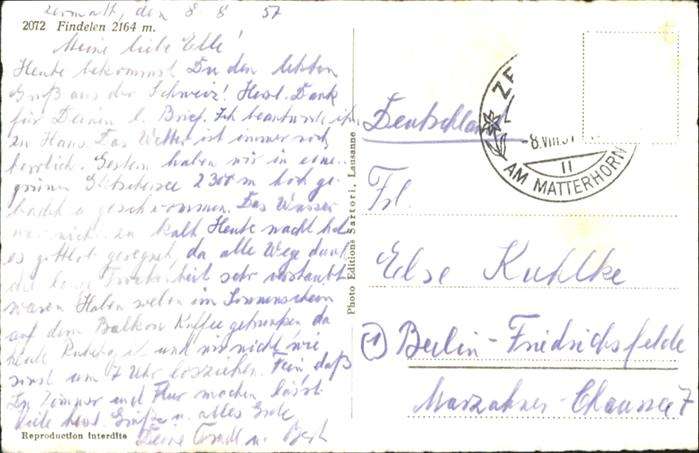 Zermatt, den 8 8 57
2072 Findelen 2164 m.
Meine liebe Elle!
Heute bekommst Du den letzten
Gruß aus der Schweiz! Herzl. Dank
für Deinen l. Brief. Ich beantworte ihn
zu Haus. Das Wetter ist immer noch
herrlich. Gestern haben wir in einem
grünen 2300 m hoch ge-
badet u. geschwommen. Das Wasser
war nicht zu kalt. Heute nacht hat
es gottlob geregnet, da alle Wege durch
die lange Trockenheit sehr verstaubt
waren. Haben im Sonnenschein
auf dem Balkon Kaffee getrunken, da
heute Ruhetag ist und wir nicht wie
sonst um 7 Uhr losziehen. Fein, daß
Du Zimmer und Flur machen läßt.
Viele herzl. Grüße u. alles Gute
Deine u.
Reproduction interdite
Photo Editions Sartori, Lausanne
ZE
8.VIII.57
II
AM MATTERHORN
Deutschland
Frl.
Else Kuhlke
(1) Berlin-Friedrichsfelde
Marzahner-Chaussee 7